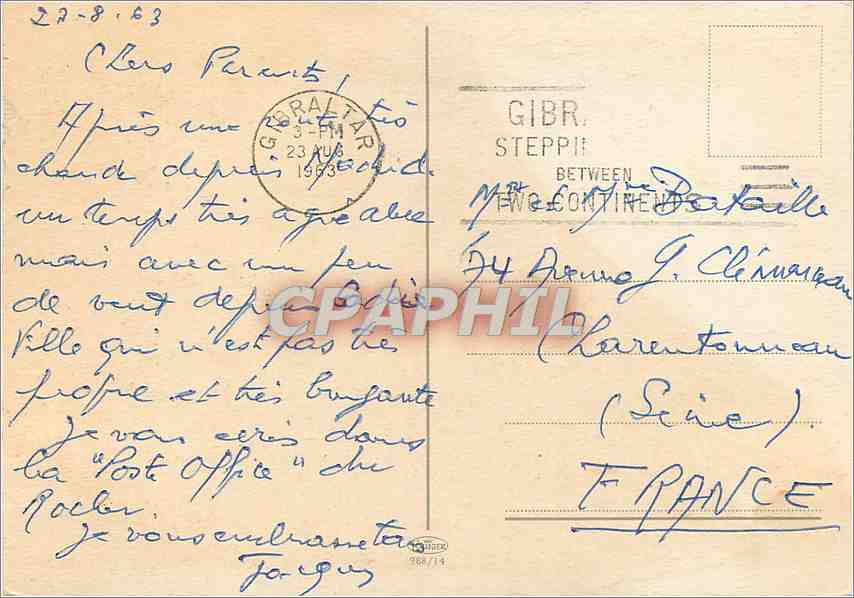 23-8-63
Chers Parents,
Après une route très
chaude depuis Madrid.
un temps très agréable
mais avec un peu
de vent depuis Cadix
Ville qui n'est pas très
propre et très bruyante
Je vous écris dans
la "Poste Office" du
Rocher.
Je vous embrasse tous
Jacques
GIBRALTAR
3-PM
23 AUG
1963
GIBRA
STEPPI
BETWEEN
TWO CONTINENTS
Mr et Mme Bataille
74 Avenue G. Clémenceau
Charentonneau
(Seine).
FRANCE
CPAPHIL
988/14